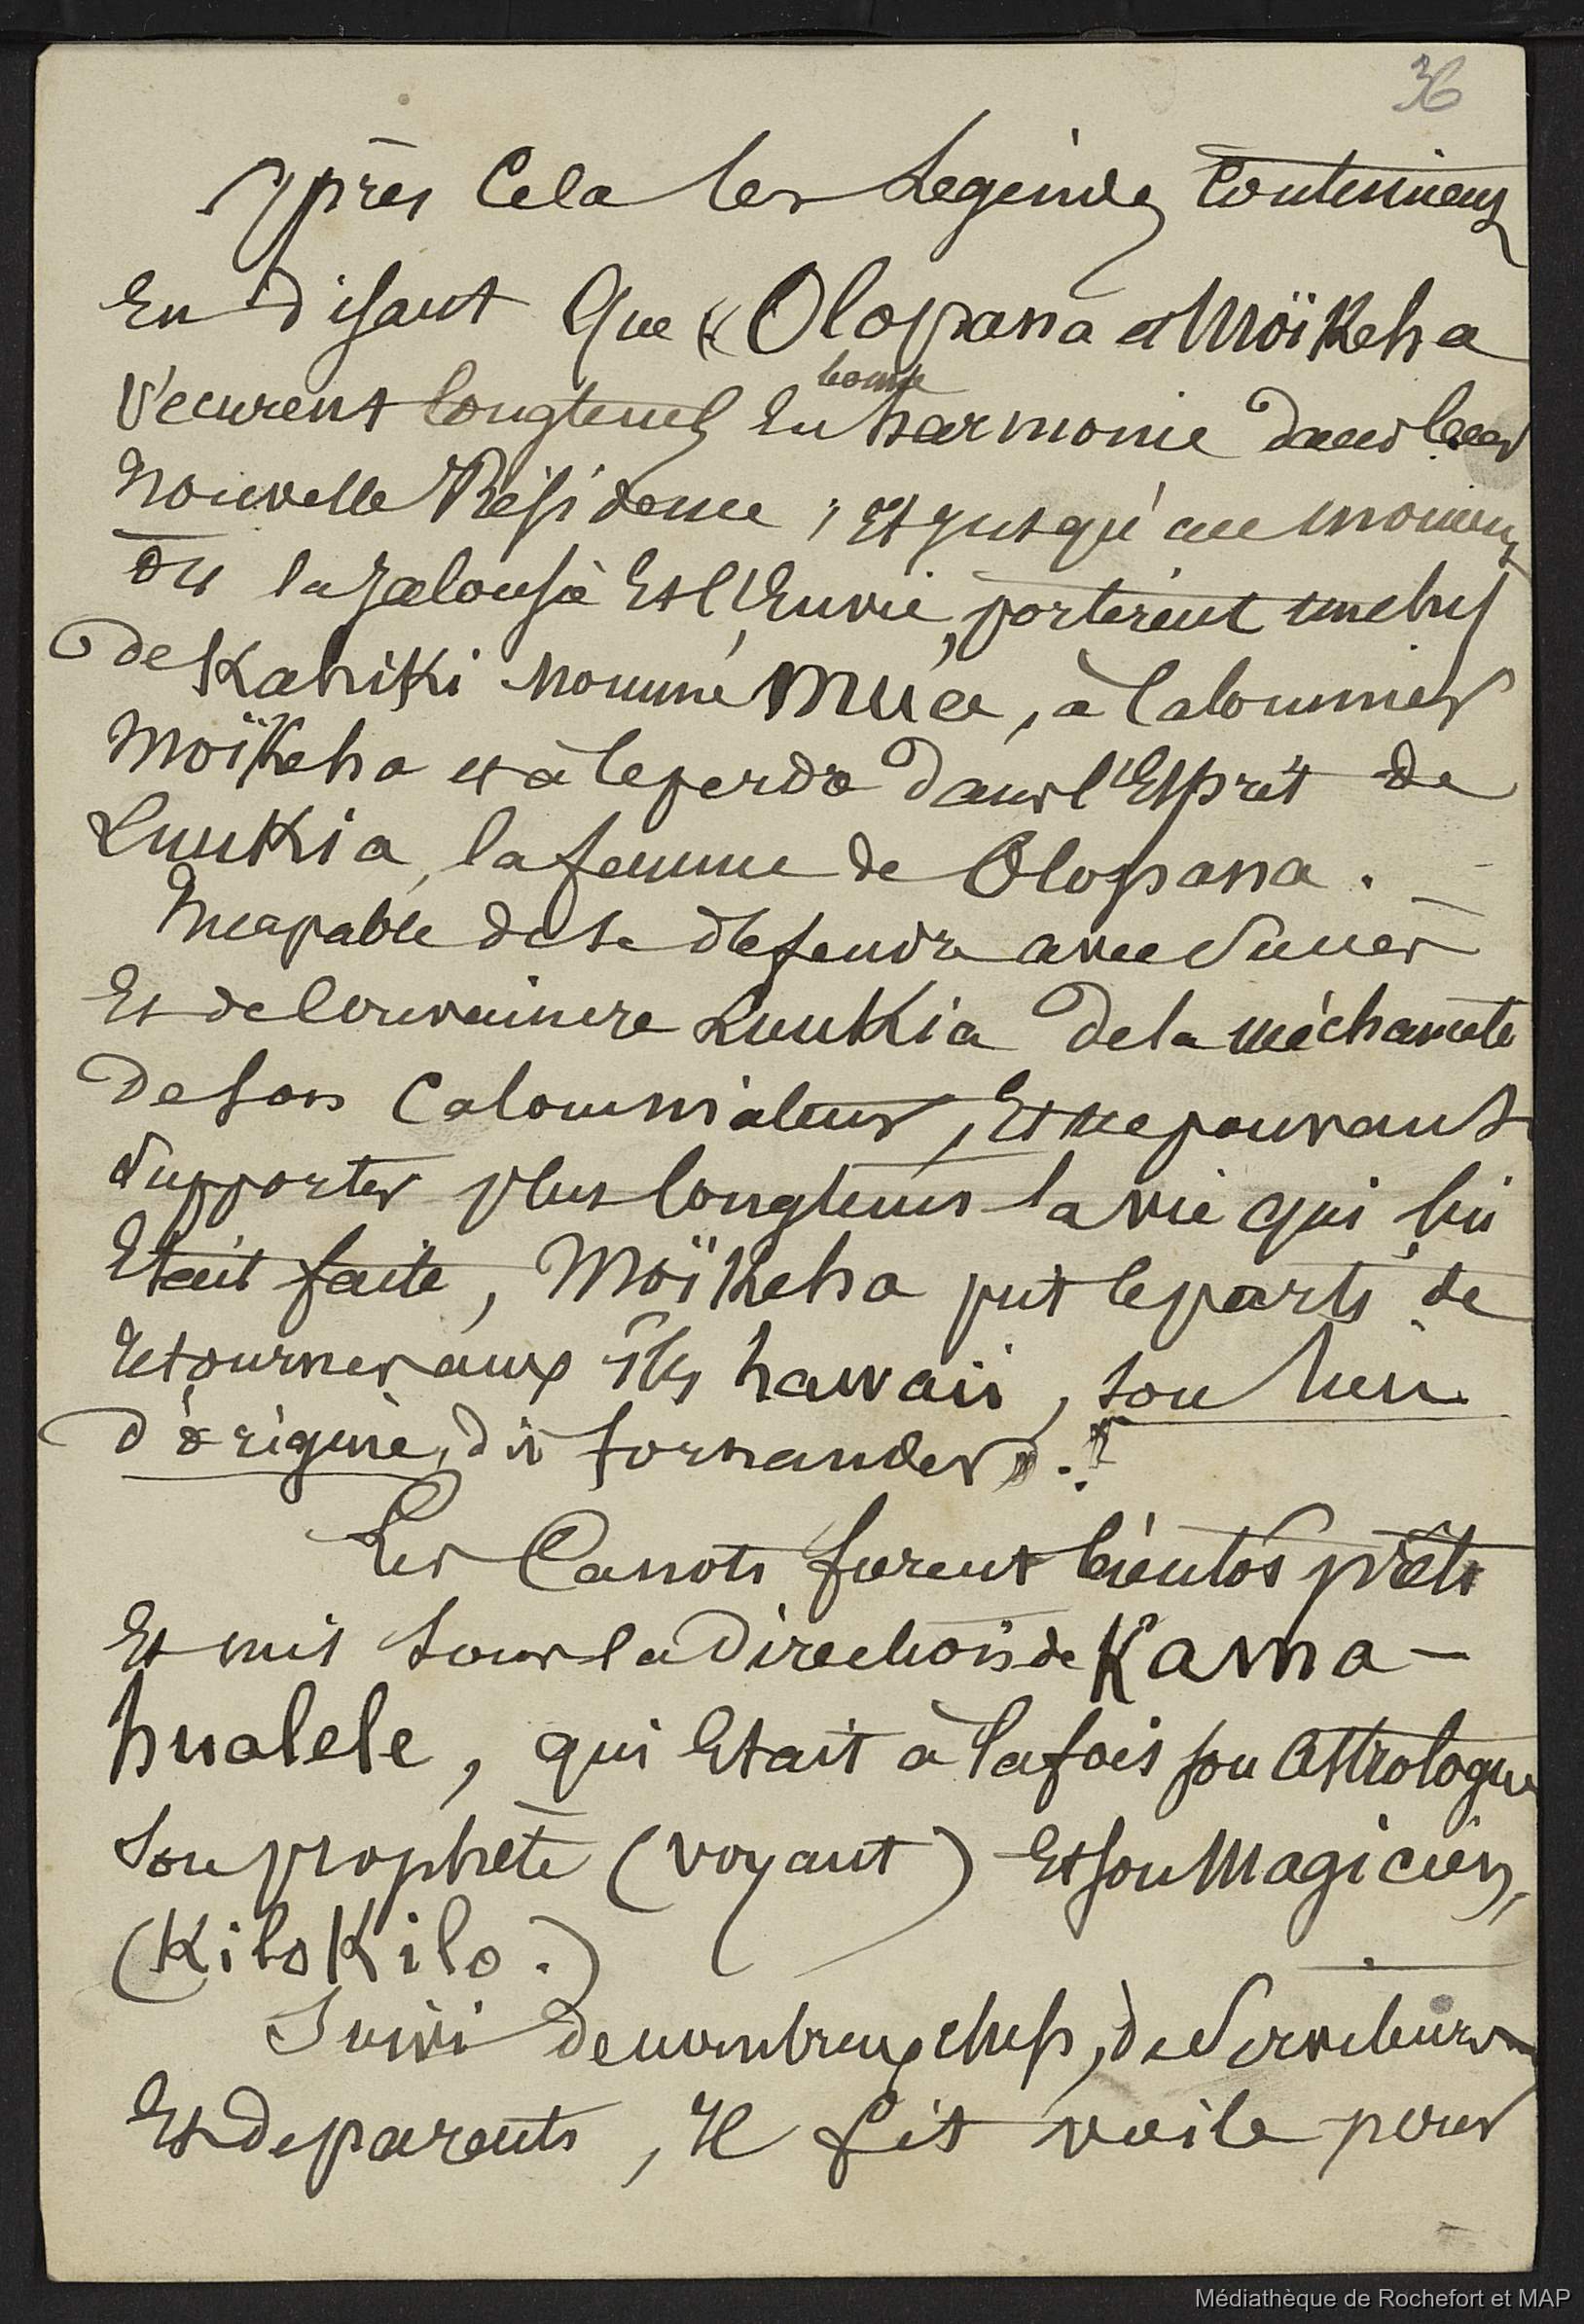 36
Après Cela les Légendes Continuent
En disant Que « Olopana et Moïkeha
Vécurent longtems En bonne harmonie dans leur
Nouvelle Résidence ; Et jusqu'au moment
où la Jalousie Et l'Envie, portèrent un chef
de Kahiki nommé Mua, à Calomnier
Moïkeha et à le perdre dans l'Esprit de
Luukia, la femme de Olopana.
Incapable de se défendre avec Succès
Et de Convaincre Luukia de la méchanceté
de son Calomniateur, Et ne pouvant
Supporter plus longtems la vie qui lui
Etait faite, Moïkeha prit le parti de
Retourner aux Iles hawaii, son lieu
d'origine, dit fornander ». ?
Les Canots furent bientôt prêts
Et mis sous la direction de Kama-
hualele, qui Etait à la fois son Astrologue
Son prophète (voyant) Et son Magicien,
(KiloKilo.)
Suivi de nombreux chefs, de Serviteurs
Et de parents, Il fit voile pour
Médiathèque de Rochefort et MAP